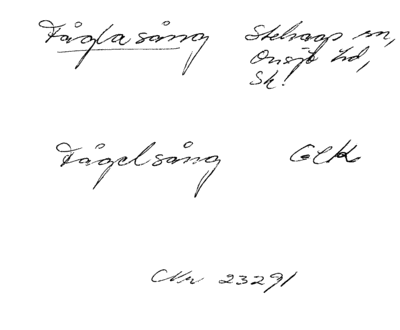 Fågla sång Stehags sn,
Onsjö hd,
Sk!
Fågelsång GEK
Nr 23291